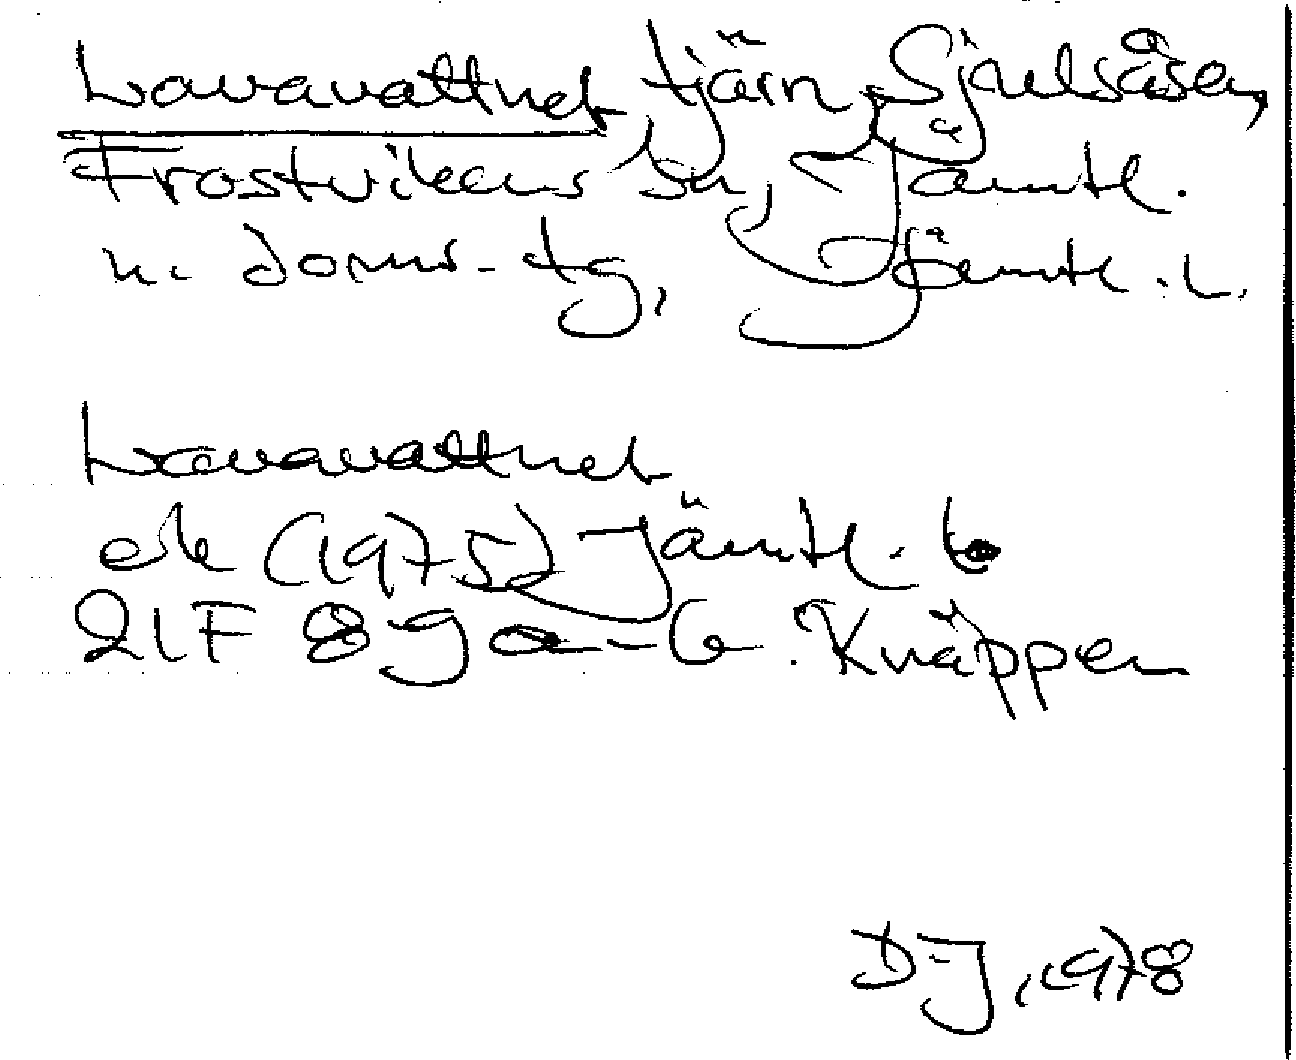 Lavavattnet tjärn, Sjulsåsen,
Frostvikens sn, Jämtl.
n. doms.-tg, Jämtl. l.
Lavavattnet
ek (1975) Jämtl. l
21F 8g a-b Knäppen
DJ, 1978